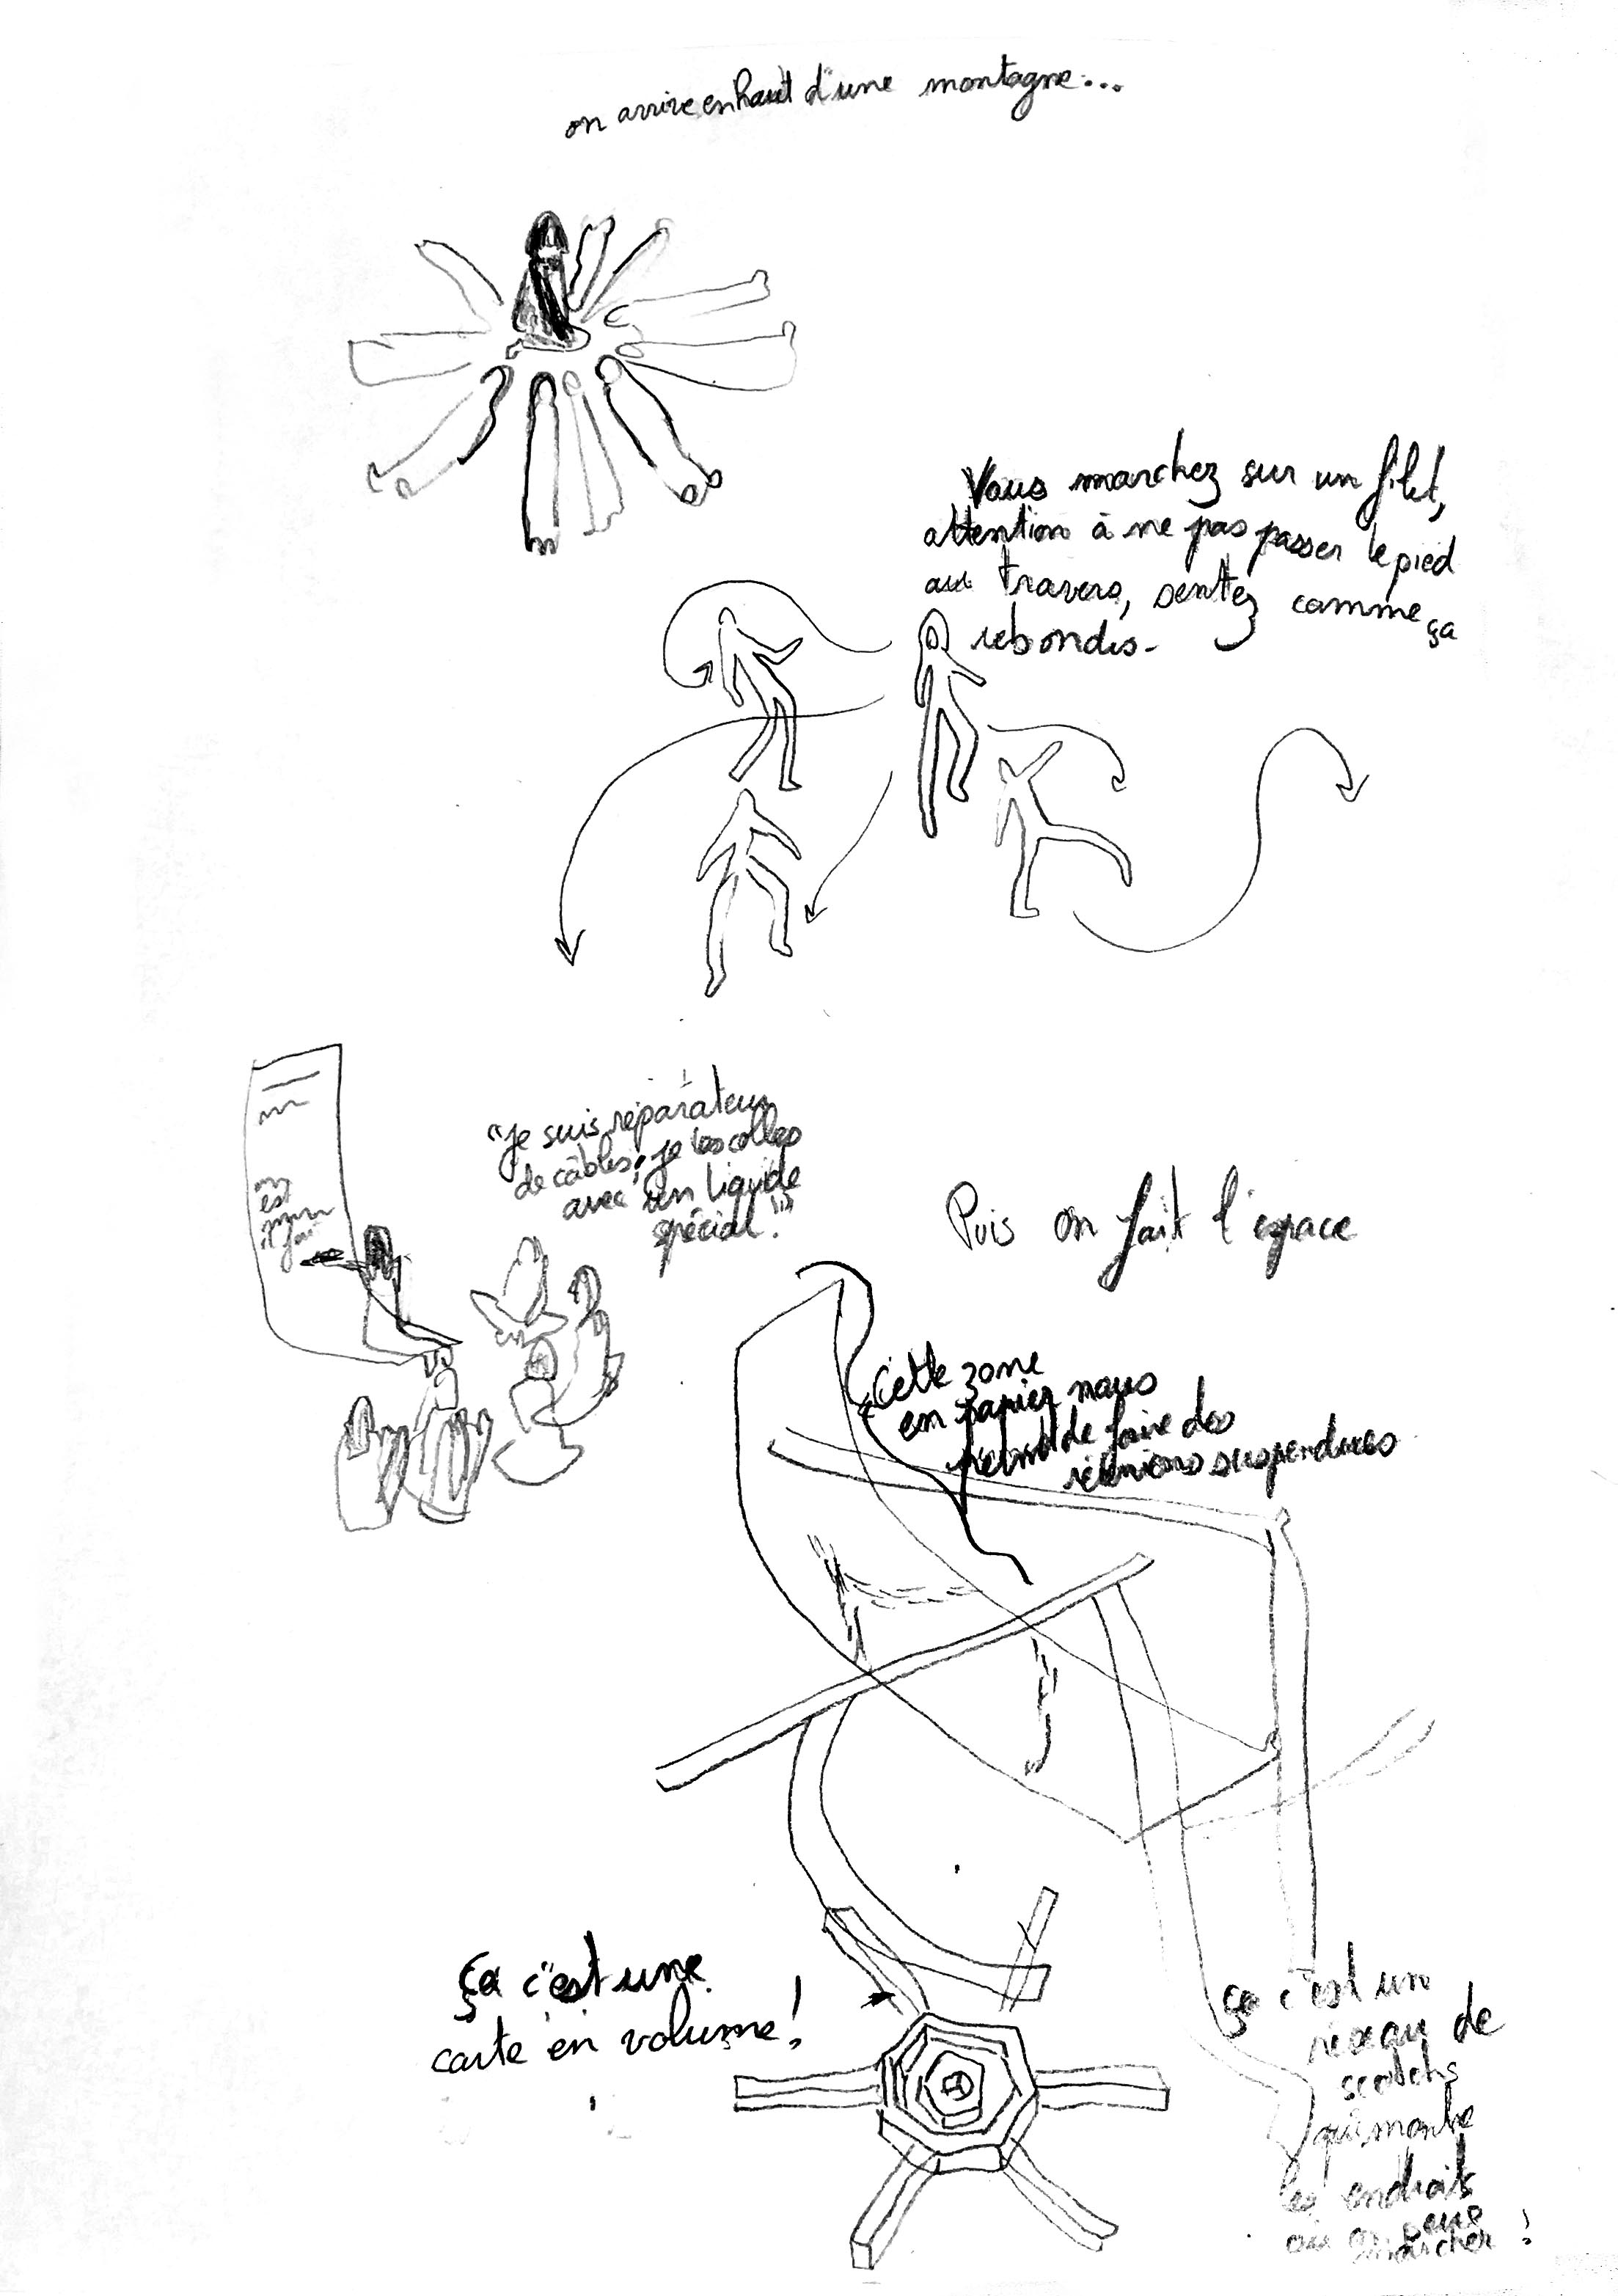 on arrive en haut d'une montagne...
Vous marchez sur un filet,
attention à ne pas passer le pied
au travers, sentez comme ça
rebondis.
"Je suis réparateur
de câbles, je les colles
avec un liquide
spécial."
est
Puis on fait l'espace
Cette zone
en papier nous
permet de faire des
réunions suspendues
ça c'est une
carte en volume!
ça c'est un
réseau de
scotchs
qui montre
les endroits
où on peut
marcher!